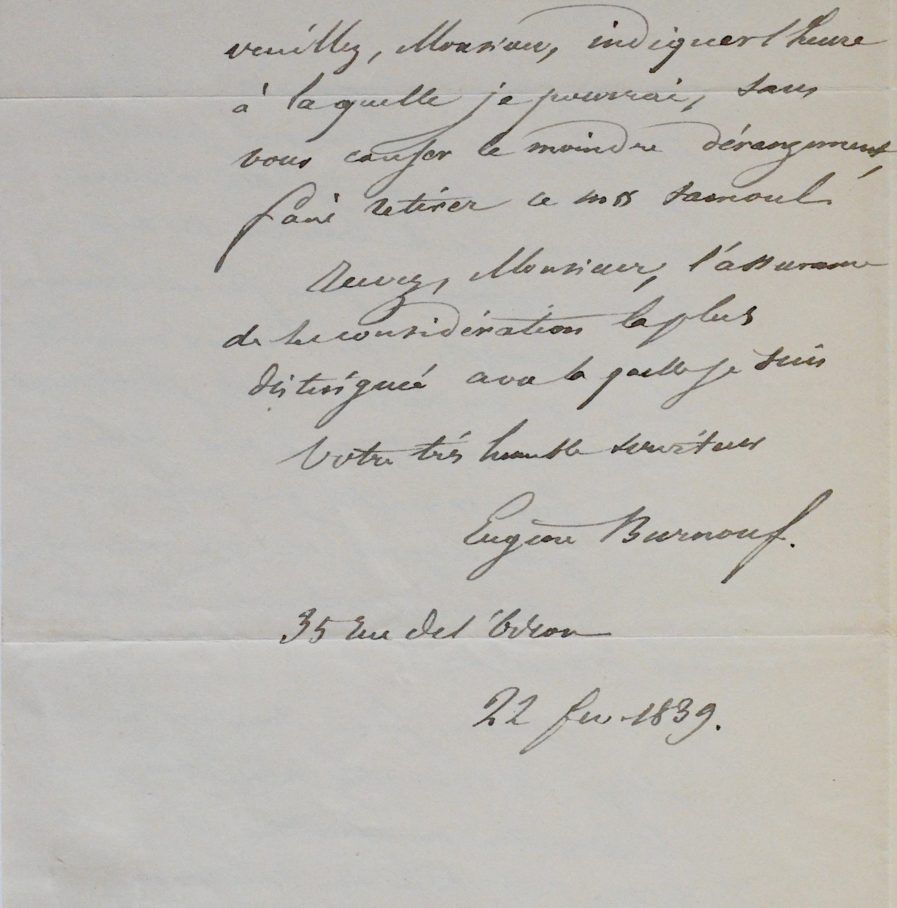 veuillez, Monsieur, indiquer l'heure
à laquelle je pourrai, sans
vous causer le moindre dérangement,
faire retirer ce mss tamoul.
Recevez, Monsieur, l'assurance
de la considération la plus
distinguée avec laquelle je suis
Votre très humble serviteur
Eugène Burnouf.
35 rue de l'Odéon
22 fev. 1839.